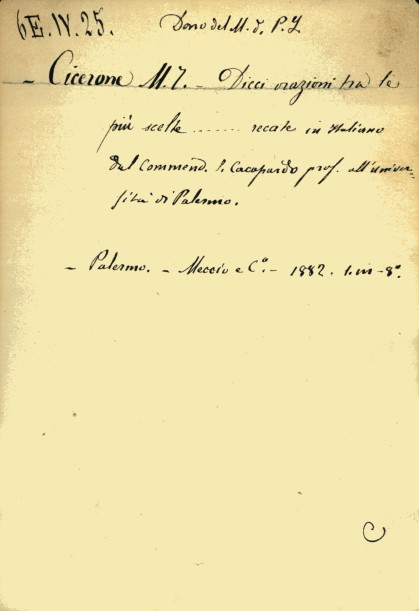 6E.IV.25. Dono del M. d. P. I.
- Cicerone M. T. - Dieci orazioni tra le
più scelte ........ recate in Italiano
dal Commend. S. Cacopardo prof. all'univer-
sità di Palermo.
- Palermo. - Meccio e C.º - 1882. 1. in - 8º
C